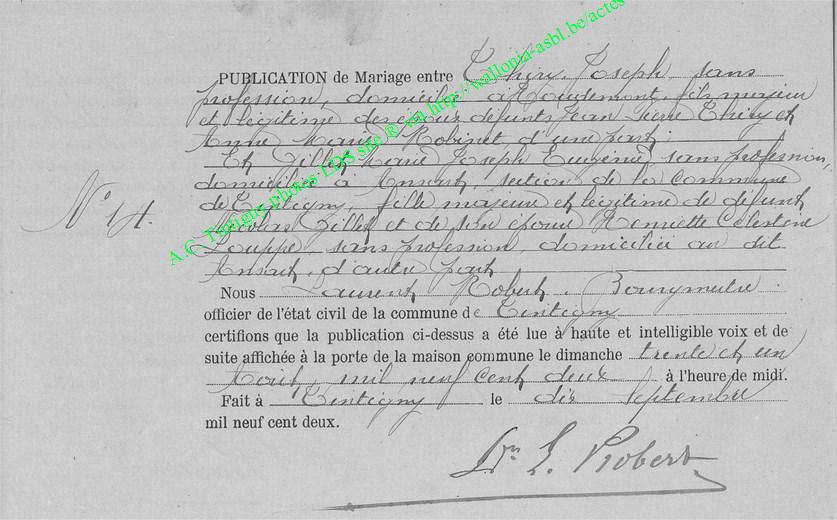 PUBLICATION de Mariage entre Thiry Joseph, sans
profession, domicilié à Houdemont, fils majeur
et légitime des époux défunts Jean Pierre Thiry et
Anne Marie Robinet d'une part;
Et Gillet Marie Joseph Eugénie, sans profession,
domiciliée à Ansart, section de la commune
de Tintigny, fille majeure et légitime de défunt
Nicolas Gillet et de son épouse Henriette Célestine
Louppe, sans profession, domiciliée au dit
Ansart, d'autre part
N° 14.
Nous Laurent Robert, Bourgmestre
officier de l'état civil de la commune de Tintigny
certifions que la publication ci-dessus a été lue à haute et intelligible voix et de
suite affichée à la porte de la maison commune le dimanche trente et un
Août, mil neuf cent deux à l'heure de midi.
Fait à Tintigny le dix Septembre
mil neuf cent deux.
Dr L. Robert
A.C. Tintigny photos LDS site ® via http://wallonia-asbl.be/actes